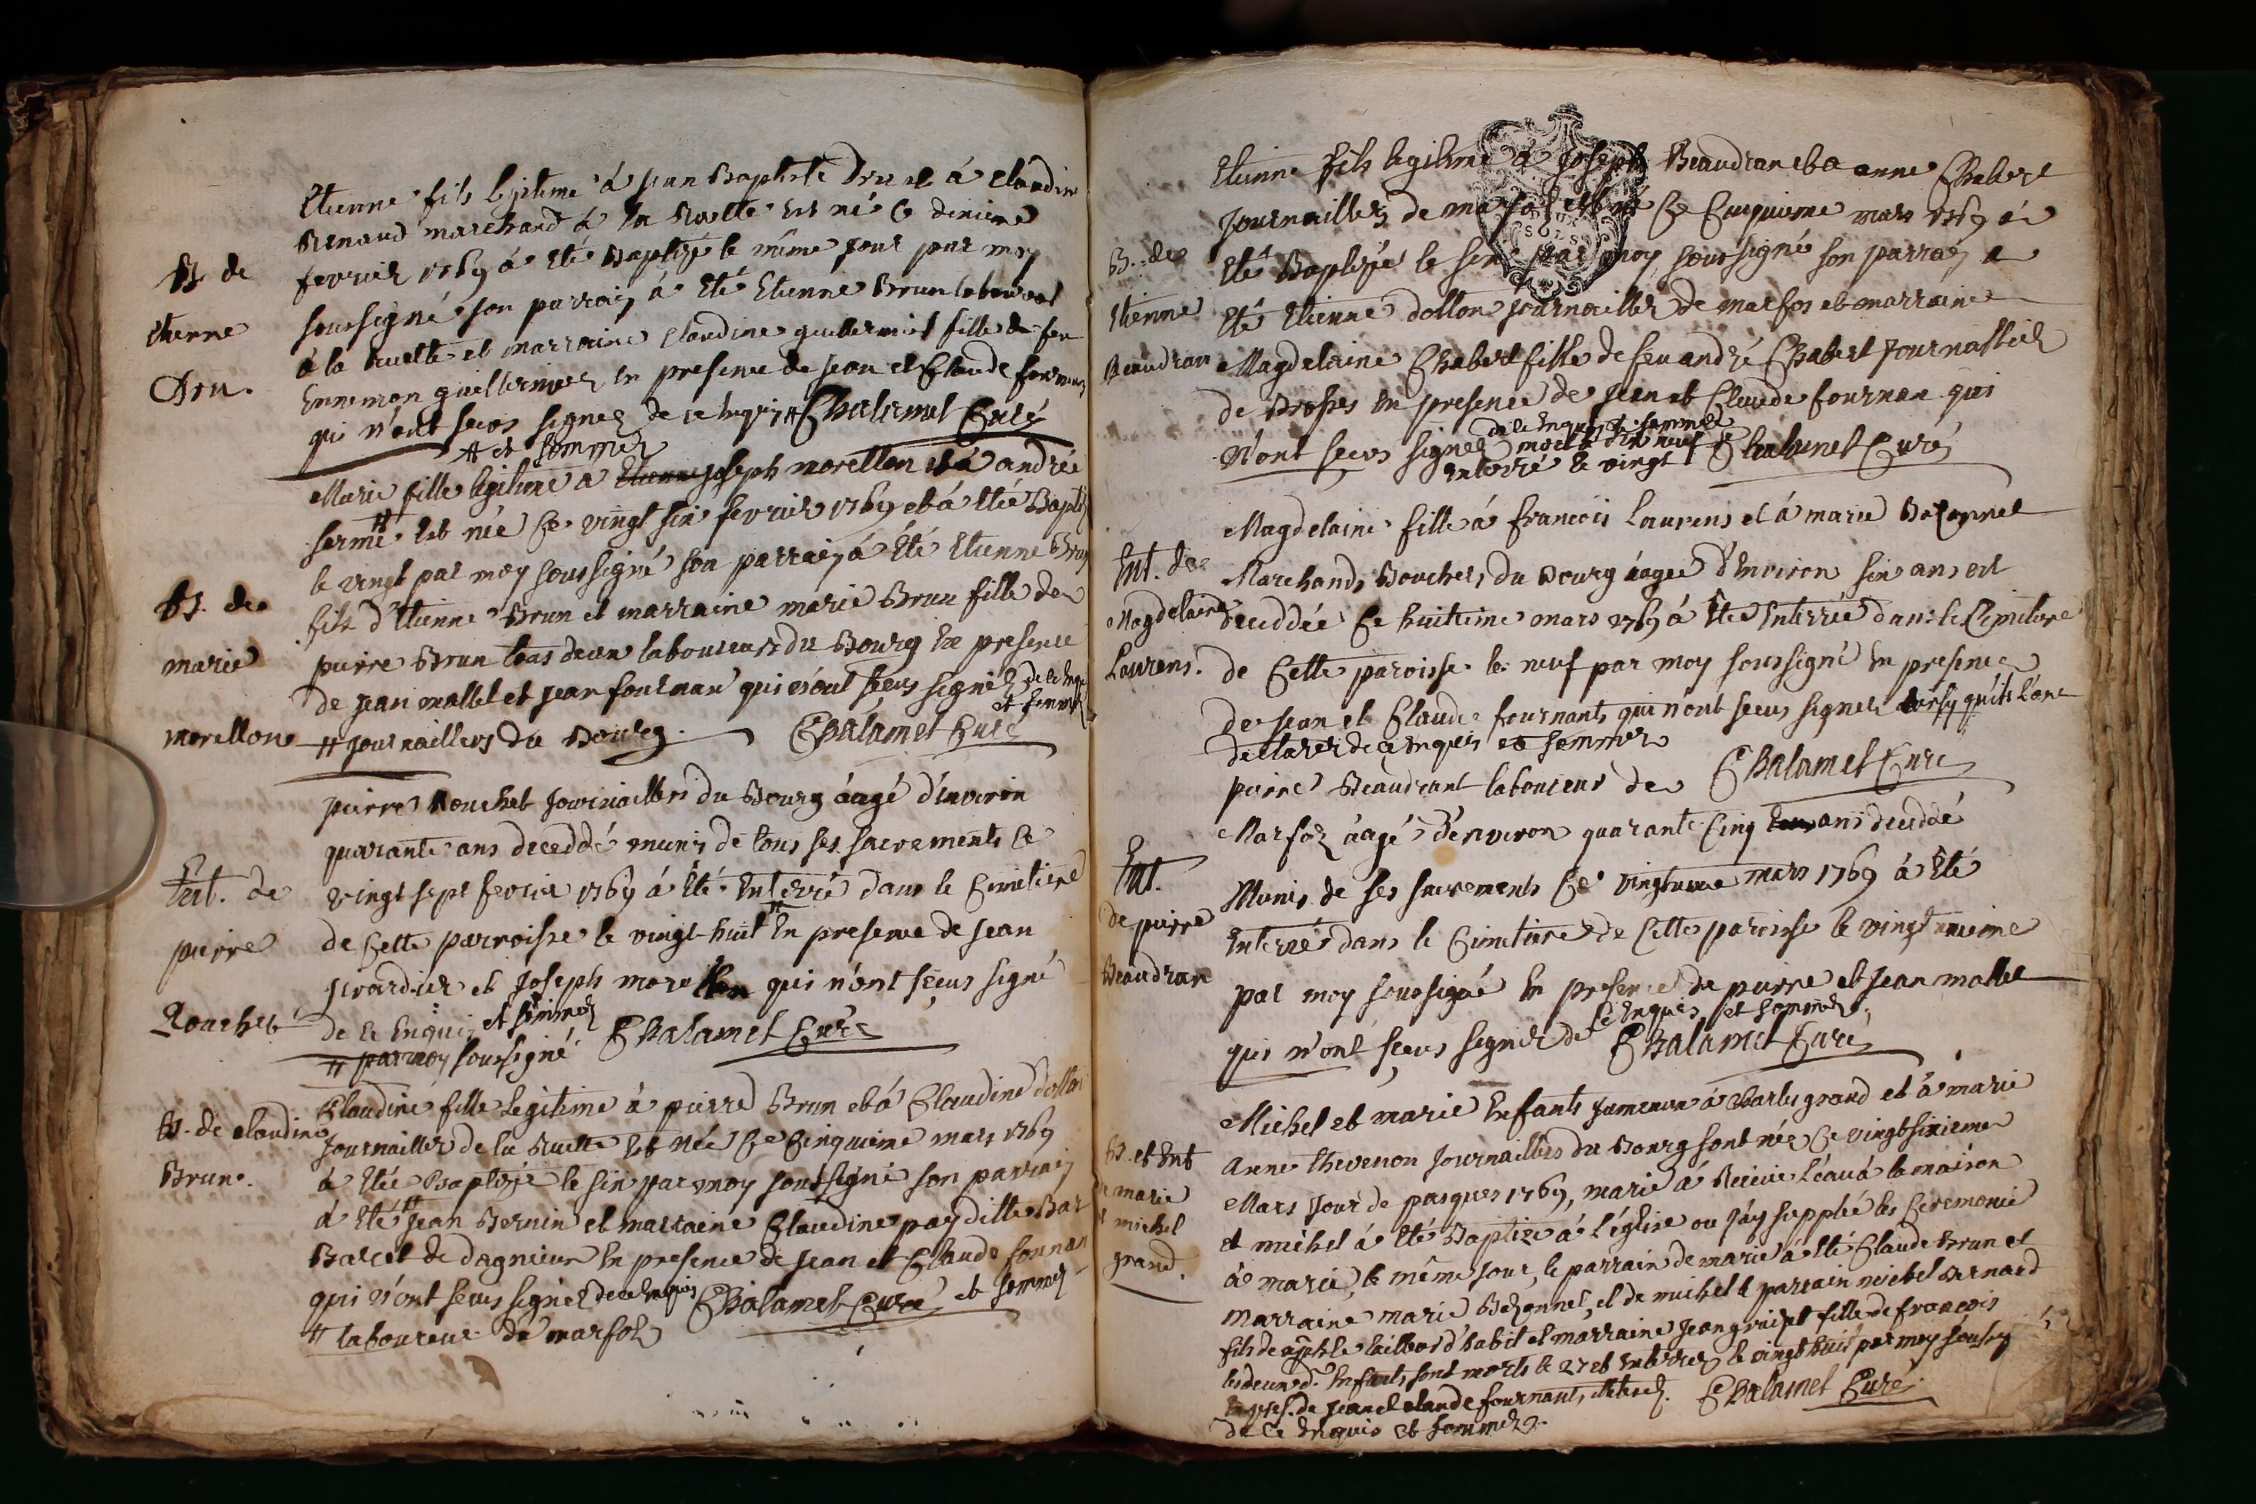 B. de
etienne
Dru.
Etienne fils legitime à Jean Baptiste Dru et à Claudine
Renaud marchand à la Ruette est né ce dernier
fevrier 1769 à eté Baptizé le même jour par moy
soussigné son parrain à eté Etienne Brun laboureur
à la Ruette et marraine Claudine guillermet fille de feu
Ennemon guillermet en presence de jean et Claude fournan
qui n'ont sceus signer de ce enquis # Chalamel Curé
# et sommez
B. de
marie
morellon
Marie fille legitime à Etienne joseph morellon et à andrée
sermé # est née ce vingt six fevrier 1769 et à eté Bapti
le vingt par moy soussigné son parrain à été Etienne Brun
fils d'Etienne Brun et marraine marie Brun fille de
pierre Brun tous deux laboureurs du Bourg en presence
de jean mallet et jean fournan qui n'ont sceus signer de ce enquis
et sommez
# journaillers du Bourg. Chalamel Curé
Ent. de
pierre
Rouchet
pierre Rouchet journailler du Bourg âagé d'environ
quarante ans deceddé munis de tous ses sacrements ce
vingt sept fevrier 1769 à été Enterré dans le Cimetiere
de Cette parroisse le vingt-huit # En presence de jean
girardier et joseph morellon qui n'ont sceus signé
de ce enquis et sommez Chalamel Curé
# par moy soussigné
B. de claudine
Brun.
Claudine fille legitime à pierre Brun et à Claudine dollon
journailler de la Ruette est née ce Cinquieme mars 1769
à etée Baptizé le six par moy soussigné son parrain
à eté # jean Bernin et marraine Claudine pay ditte Bar
Barcet de dagnieux en presence de jean et Claude fournan
qui n'ont sceus signer de ce enquis Chalamel Curé et sommez
# laboureur de marfoz
B. de
Etienne
Beaudran
Etienne fils legitime à joseph Beaudran et à anne Chabert
journailler de marfoz est né ce Cinquieme mars 1769 à
eté Baptizé le six par moy soussigné son parrain a
eté Etienne dollon journailler de marfos et marraine
Magdelaine Chabert fille de feu andré Chabert journallier
de Brosses en presence de jean et Claude fournan qui
n'ont sceus signer de ce enquis et sommez Chalamel Curé
mort le dix neuf
enterré le vingt
Ent. de
Magdelaine
Laurens.
Magdelaine fille à francois Laurens et à marie Bezonnet
Marchands Boucher, du Bourg âagée d'environ six ans est
deceddée ce huitieme mars 1769 à eté Enterrée dans le Cimitiere
de Cette paroisse le neuf par moy soussigné en presence
de jean et Claude fournants qui n'ont sceus signer ainsy qu'ils l'ont
declarer de ce enquis et sommez
Chalamel Curé
Ent.
de pierre
Beaudran
pierre Beaudrant laboureur de
Marfoz âagé d'environ quarante Cinq ans deceddé
Munis de ses sacrements ce vingtieme mars 1769 à Eté
Enterré dans le Cimetiere de Cette paroisse le vingt unieme
par moy soussigné en presence de pierre et jean mallet
qui n'ont sceus signer de ce enquis et sommez
Chalamel Curé
B. et Ent
de marie
et michel
grand.
Michel et marie Enfants jumeaux à Charles grand et à marie
Anne thevenon journaillers du Bourg sont nés ce vingt sixieme
Mars jour de pasques 1769, marie à Recüe l'eau à la maison
et michel à eté Baptizé à l'église ou j'ay supplée les Ceremonie
à marie, le même jour, le parrain de marie à eté Claude Brun et
marraine marie Bezonnet, et de michel le parrain michel Bernard
fils de tailleur d'habit et marraine jean fille de francois
les deux d. Enfants sont morts le 27 et enterrez le vingt huit par moy soussig
en pres. de jean et claude fournants, illiterez. Chalamel Curé
de ce enquis et sommez.